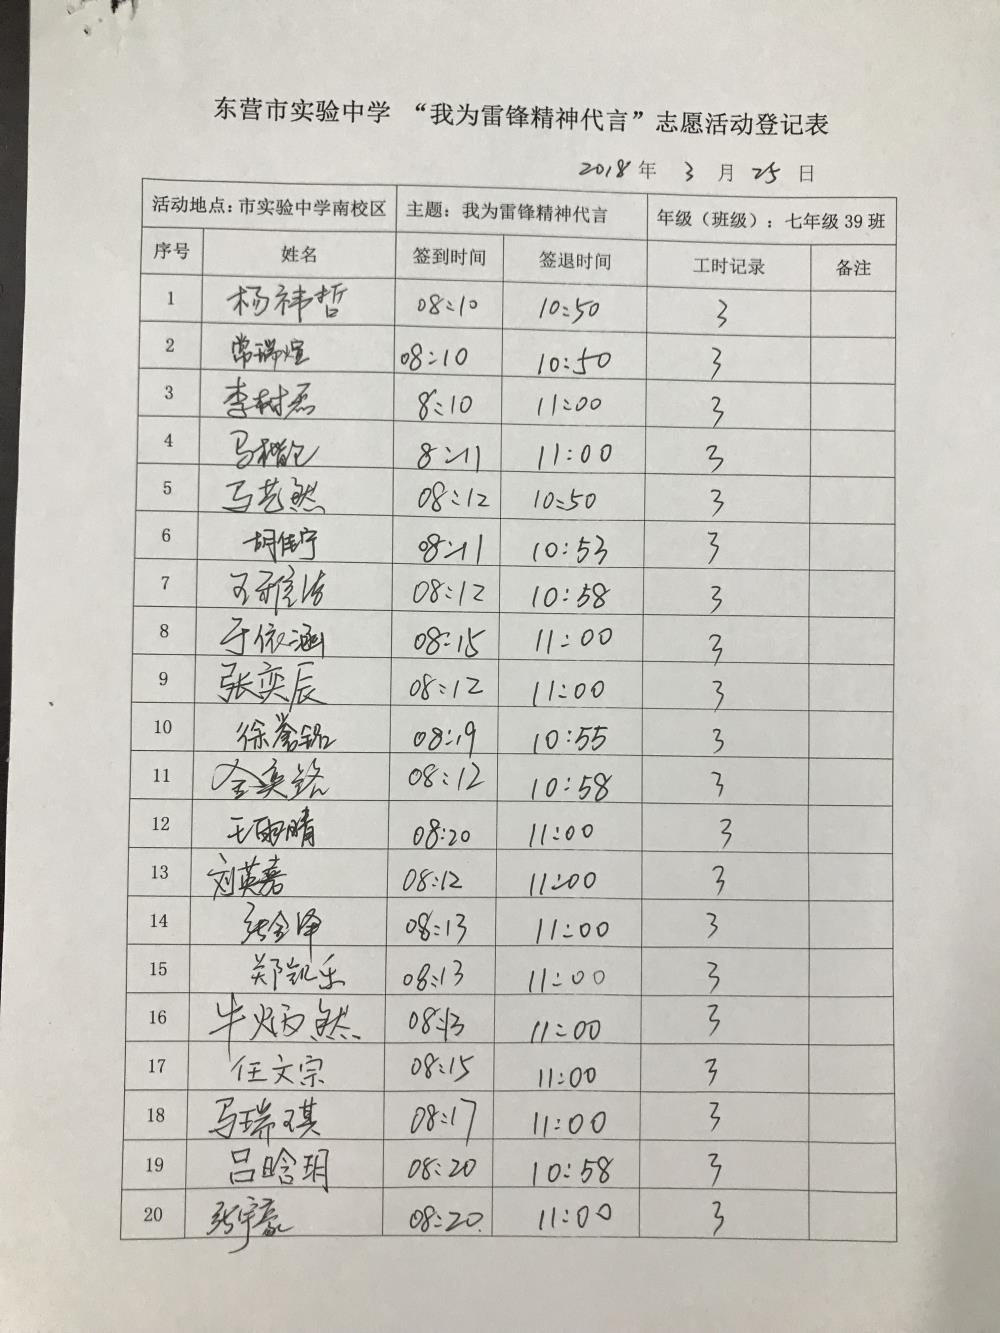 东营市实验中学 “我为雷锋精神代言”志愿活动登记表
2018 年 3 月 25 日
活动地点：市实验中学南校区 主题：我为雷锋精神代言 年级（班级）：七年级 39 班
序号 姓名 签到时间 签退时间 工时记录 备注
1 杨祎哲 08:10 10:50 3
2 常瑞煊 08:10 10:50 3
3 李树磊 8:10 11:00 3
4 马 8:11 11:00 3
5 马艺然 08:12 10:50 3
6 胡佳宁 08:11 10:53 3
7 王雅洁 08:12 10:58 3
8 于依涵 08:15 11:00 3
9 张奕辰 08:12 11:00 3
10 徐誉铭 08:19 10:55 3
11 金奕铭 08:12 10:58 3
12 王雨晴 08:20 11:00 3
13 刘英嘉 08:12 11:00 3
14 张金泽 08:13 11:00 3
15 郑凯乐 08:13 11:00 3
16 牛炳然 08:13 11:00 3
17 任文宗 08:15 11:00 3
18 马瑞琪 08:17 11:00 3
19 吕晗玥 08:20 10:58 3
20 张宇豪 08:20 11:00 3